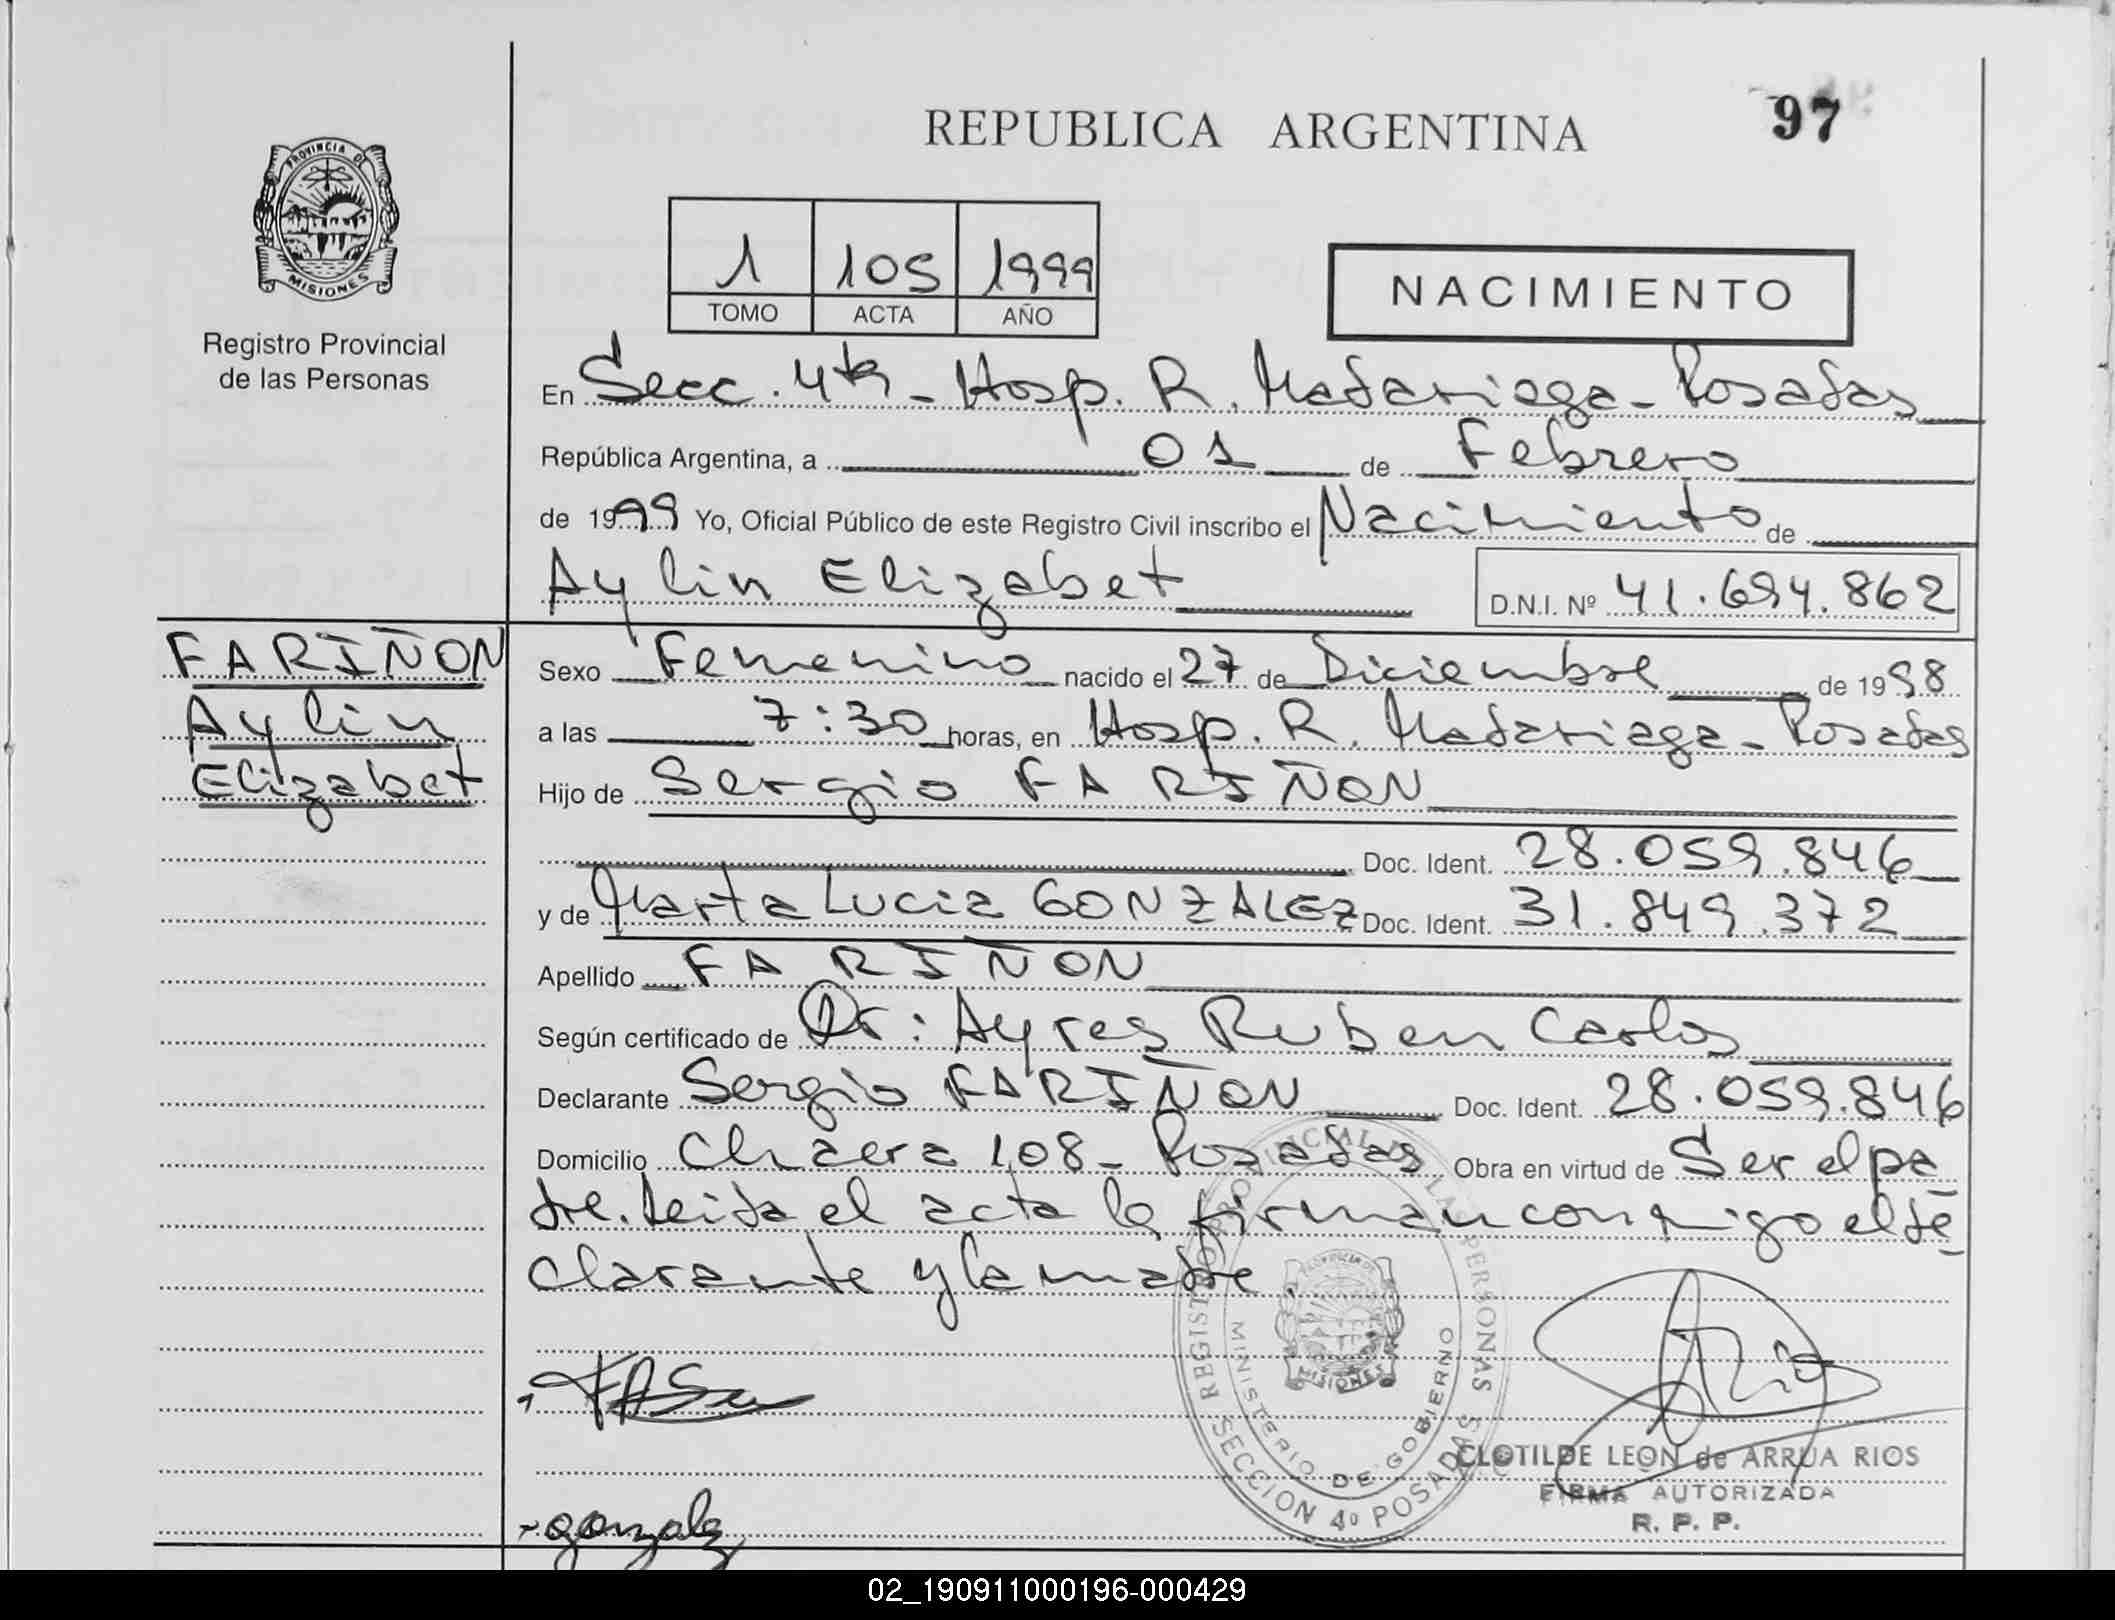 97
REPUBLICA ARGENTINA
PROVINCIA DE
MISIONES
Registro Provincial
de las Personas
1 105 1999
TOMO ACTA AÑO
NACIMIENTO
En Secc. 4ta - Hosp. R. Madariaga - Posadas
República Argentina, a 01 de Febrero
de 1999 Yo, Oficial Público de este Registro Civil inscribo el Nacimiento de
Aylin Elizabet D.N.I. Nº 41.694.862
FARIÑON
Aylin
Elizabet
Sexo Femenino nacido el 27 de Diciembre de 1998
a las 7:30 horas, en Hosp. R. Madariaga - Posadas
Hijo de Sergio FARIÑON
Doc. Ident. 28.059.846
y de Marta Lucia GONZALEZ Doc. Ident. 31.849.372
Apellido FARIÑON
Según certificado de Dr: Ayres Ruben Carlos
Declarante Sergio FARIÑON Doc. Ident. 28.059.846
Domicilio Chacra 108 - Posadas Obra en virtud de Ser el pa
dre. Leida el acta la firman conmigo el de
clarante y la madre.
REGISTRO PROVINCIAL DE LAS PERSONAS
MINISTERIO DE GOBIERNO
MISIONES
SECCION 4º POSADAS
CLOTILDE LEON de ARRUA RIOS
FIRMA AUTORIZADA
R. P. P.
gonzalez
02_190911000196-000429